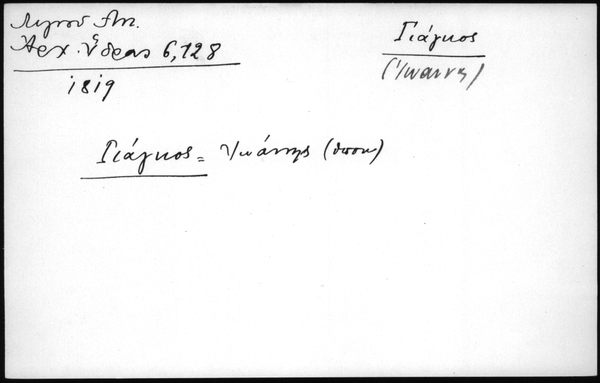 Λιγνού Αντ.
Αρχ. Ύδρας 6,128
1819
Γιάγκος
(Ιωάννης)
Γιάγκος = Ιωάννης (υποκ)